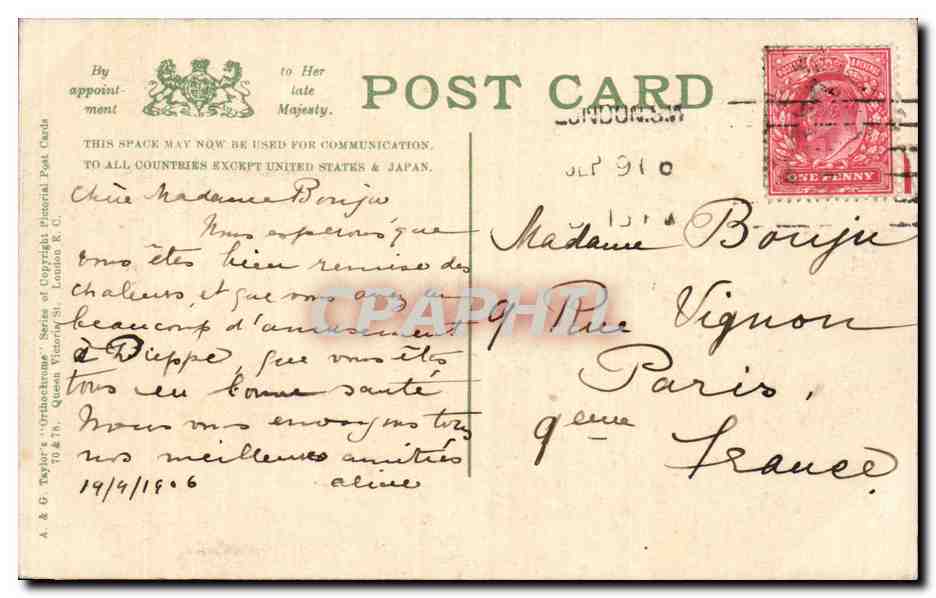 By
appoint-
ment
to Her
late
Majesty.
POST CARD
THIS SPACE MAY NOW BE USED FOR COMMUNICATION.
TO ALL COUNTRIES EXCEPT UNITED STATES & JAPAN.
A. & G. Taylor's "Orthochrome" Series of Copyright Pictorial Post Cards
70 & 78, Queen Victoria St., London E. C.
Chère Madame Bouju
Nous esperons que
vous êtes bien remise des
chaleurs, et que vous avez eu
beaucoup d'amusement
à Dieppe, que vous êtes
tous en bonne santé
Nous vous envoyons tous
nos meilleures amitiés
19/9/1906 Aline
LONDON.S.W
SEP 9 1 0
ONE PENNY
Madame Bouju
9 Rue Vignon
Paris.
9eme
France.
CPAPHIL